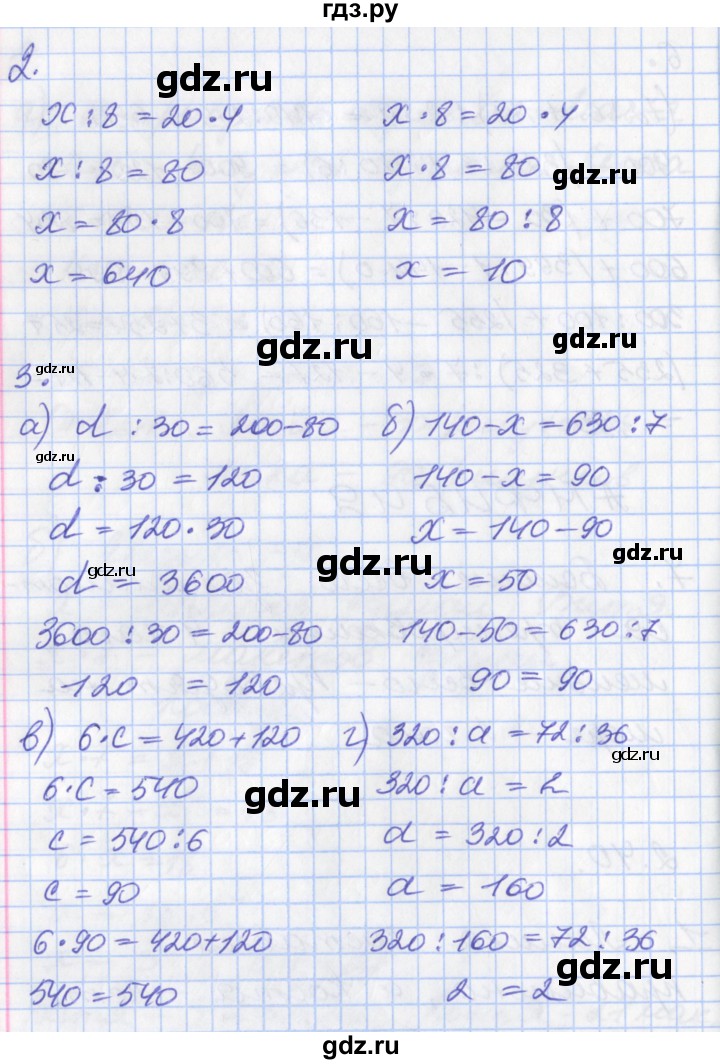 гдз.ру
2.
gdz.ru
x : 8 = 20 · 4
x · 8 = 20 · 4
x : 8 = 80
x · 8 = 80
gdz.ru
x = 80 · 8
x = 80 : 8
x = 640
x = 10
gdz.ru
gdz.ru
3.
gdz.ru
а) d : 30 = 200 - 80
б) 140 - x = 630 : 7
gdz.ru
d : 30 = 120
140 - x = 90
d = 120 · 30
x = 140 - 90
gdz.ru
gdz.ru
gdz.ru
d = 3600
x = 50
3600 : 30 = 200 - 80
140 - 50 = 630 : 7
120 = 120
90 = 90
в) 6 · c = 420 + 120
г) 320 : a = 72 : 36
gdz.ru
6 · c = 540
320 : a = 2
gdz.ru
c = 540 : 6
a = 320 : 2
c = 90
a = 160
6 · 90 = 420 + 120
320 : 160 = 72 : 36
gdz.ru
540 = 540
2 = 2
gdz.ru